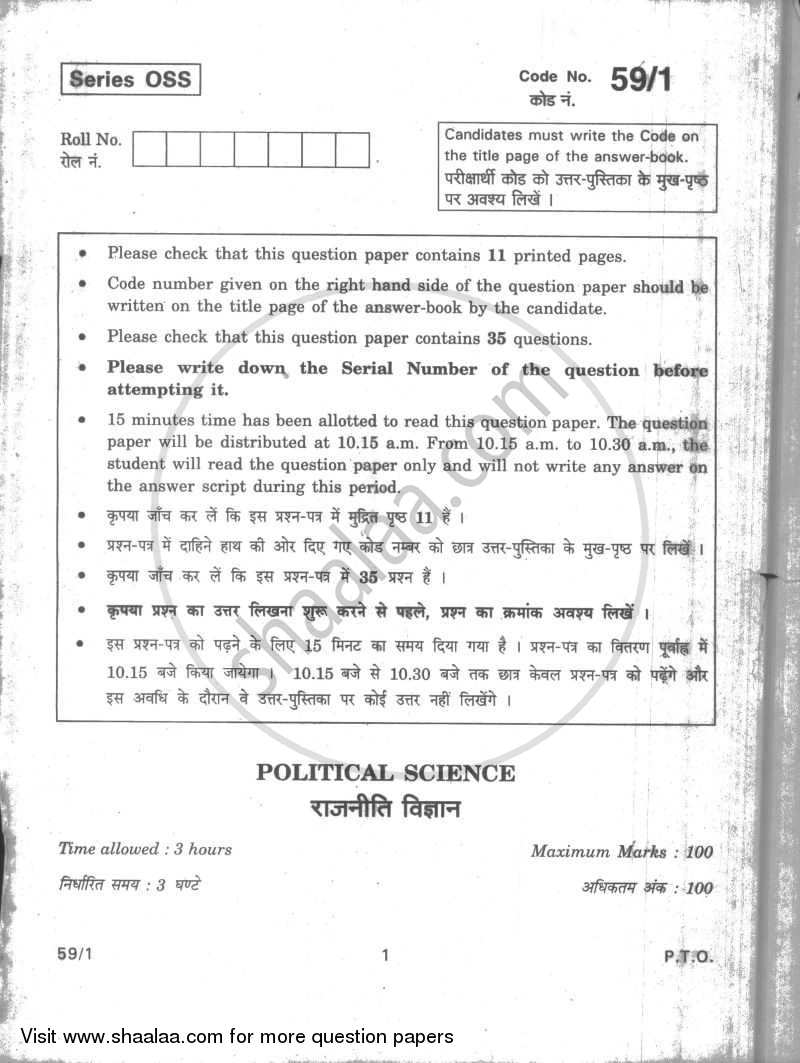 Series OSS
Code No. 59/1
कोड नं.
Roll No.
रोल नं.
Candidates must write the Code on
the title page of the answer-book.
परीक्षार्थी कोड को उत्तर-पुस्तिका के मुख-पृष्ठ
पर अवश्य लिखें ।
• Please check that this question paper contains 11 printed pages.
• Code number given on the right hand side of the question paper should be
written on the title page of the answer-book by the candidate.
• Please check that this question paper contains 35 questions.
• Please write down the Serial Number of the question before
attempting it.
• 15 minutes time has been allotted to read this question paper. The question
paper will be distributed at 10.15 a.m. From 10.15 a.m. to 10.30 a.m., the
student will read the question paper only and will not write any answer on
the answer script during this period.
• कृपया जाँच कर लें कि इस प्रश्न-पत्र में मुद्रित पृष्ठ 11 हैं ।
• प्रश्न-पत्र में दाहिने हाथ की ओर दिए गए कोड नम्बर को छात्र उत्तर-पुस्तिका के मुख-पृष्ठ पर लिखें ।
• कृपया जाँच कर लें कि इस प्रश्न-पत्र में 35 प्रश्न हैं ।
• कृपया प्रश्न का उत्तर लिखना शुरू करने से पहले, प्रश्न का क्रमांक अवश्य लिखें ।
• इस प्रश्न-पत्र को पढ़ने के लिए 15 मिनट का समय दिया गया है । प्रश्न-पत्र का वितरण पूर्वाह्न में
10.15 बजे किया जायेगा । 10.15 बजे से 10.30 बजे तक छात्र केवल प्रश्न-पत्र को पढ़ेंगे और
इस अवधि के दौरान वे उत्तर-पुस्तिका पर कोई उत्तर नहीं लिखेंगे ।
shaalaa.com
POLITICAL SCIENCE
राजनीति विज्ञान
Time allowed : 3 hours
Maximum Marks : 100
निर्धारित समय : 3 घण्टे
अधिकतम अंक : 100
59/1
1
P.T.O.
Visit www.shaalaa.com for more question papers